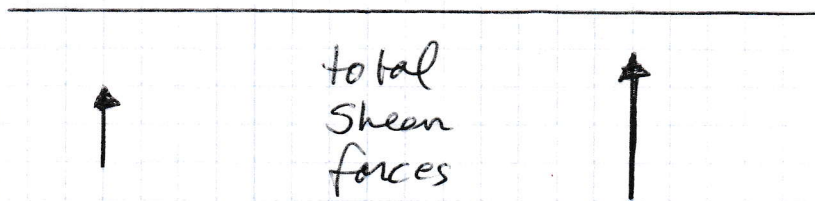 total
Shear
forces